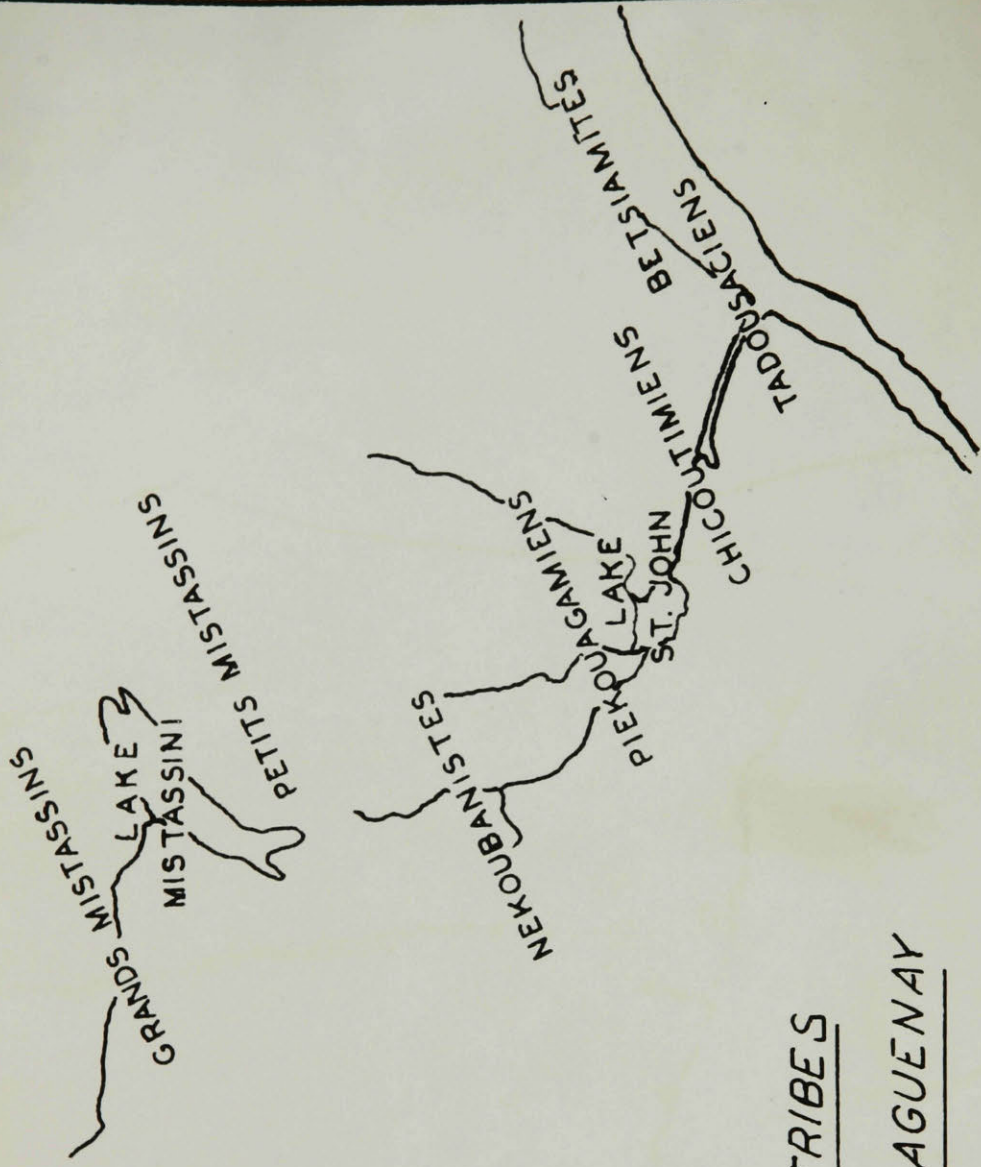 GRANDS MISTASSINS
LAKE
MISTASSINI
PETITS MISTASSINS
NEKOUBANISTES
PIEKOUAGAMIENS
LAKE
ST. JOHN
CHICOUTIMIENS
BETSIAMITES
TADOUSACIENS
TRIBES
AGUENAY